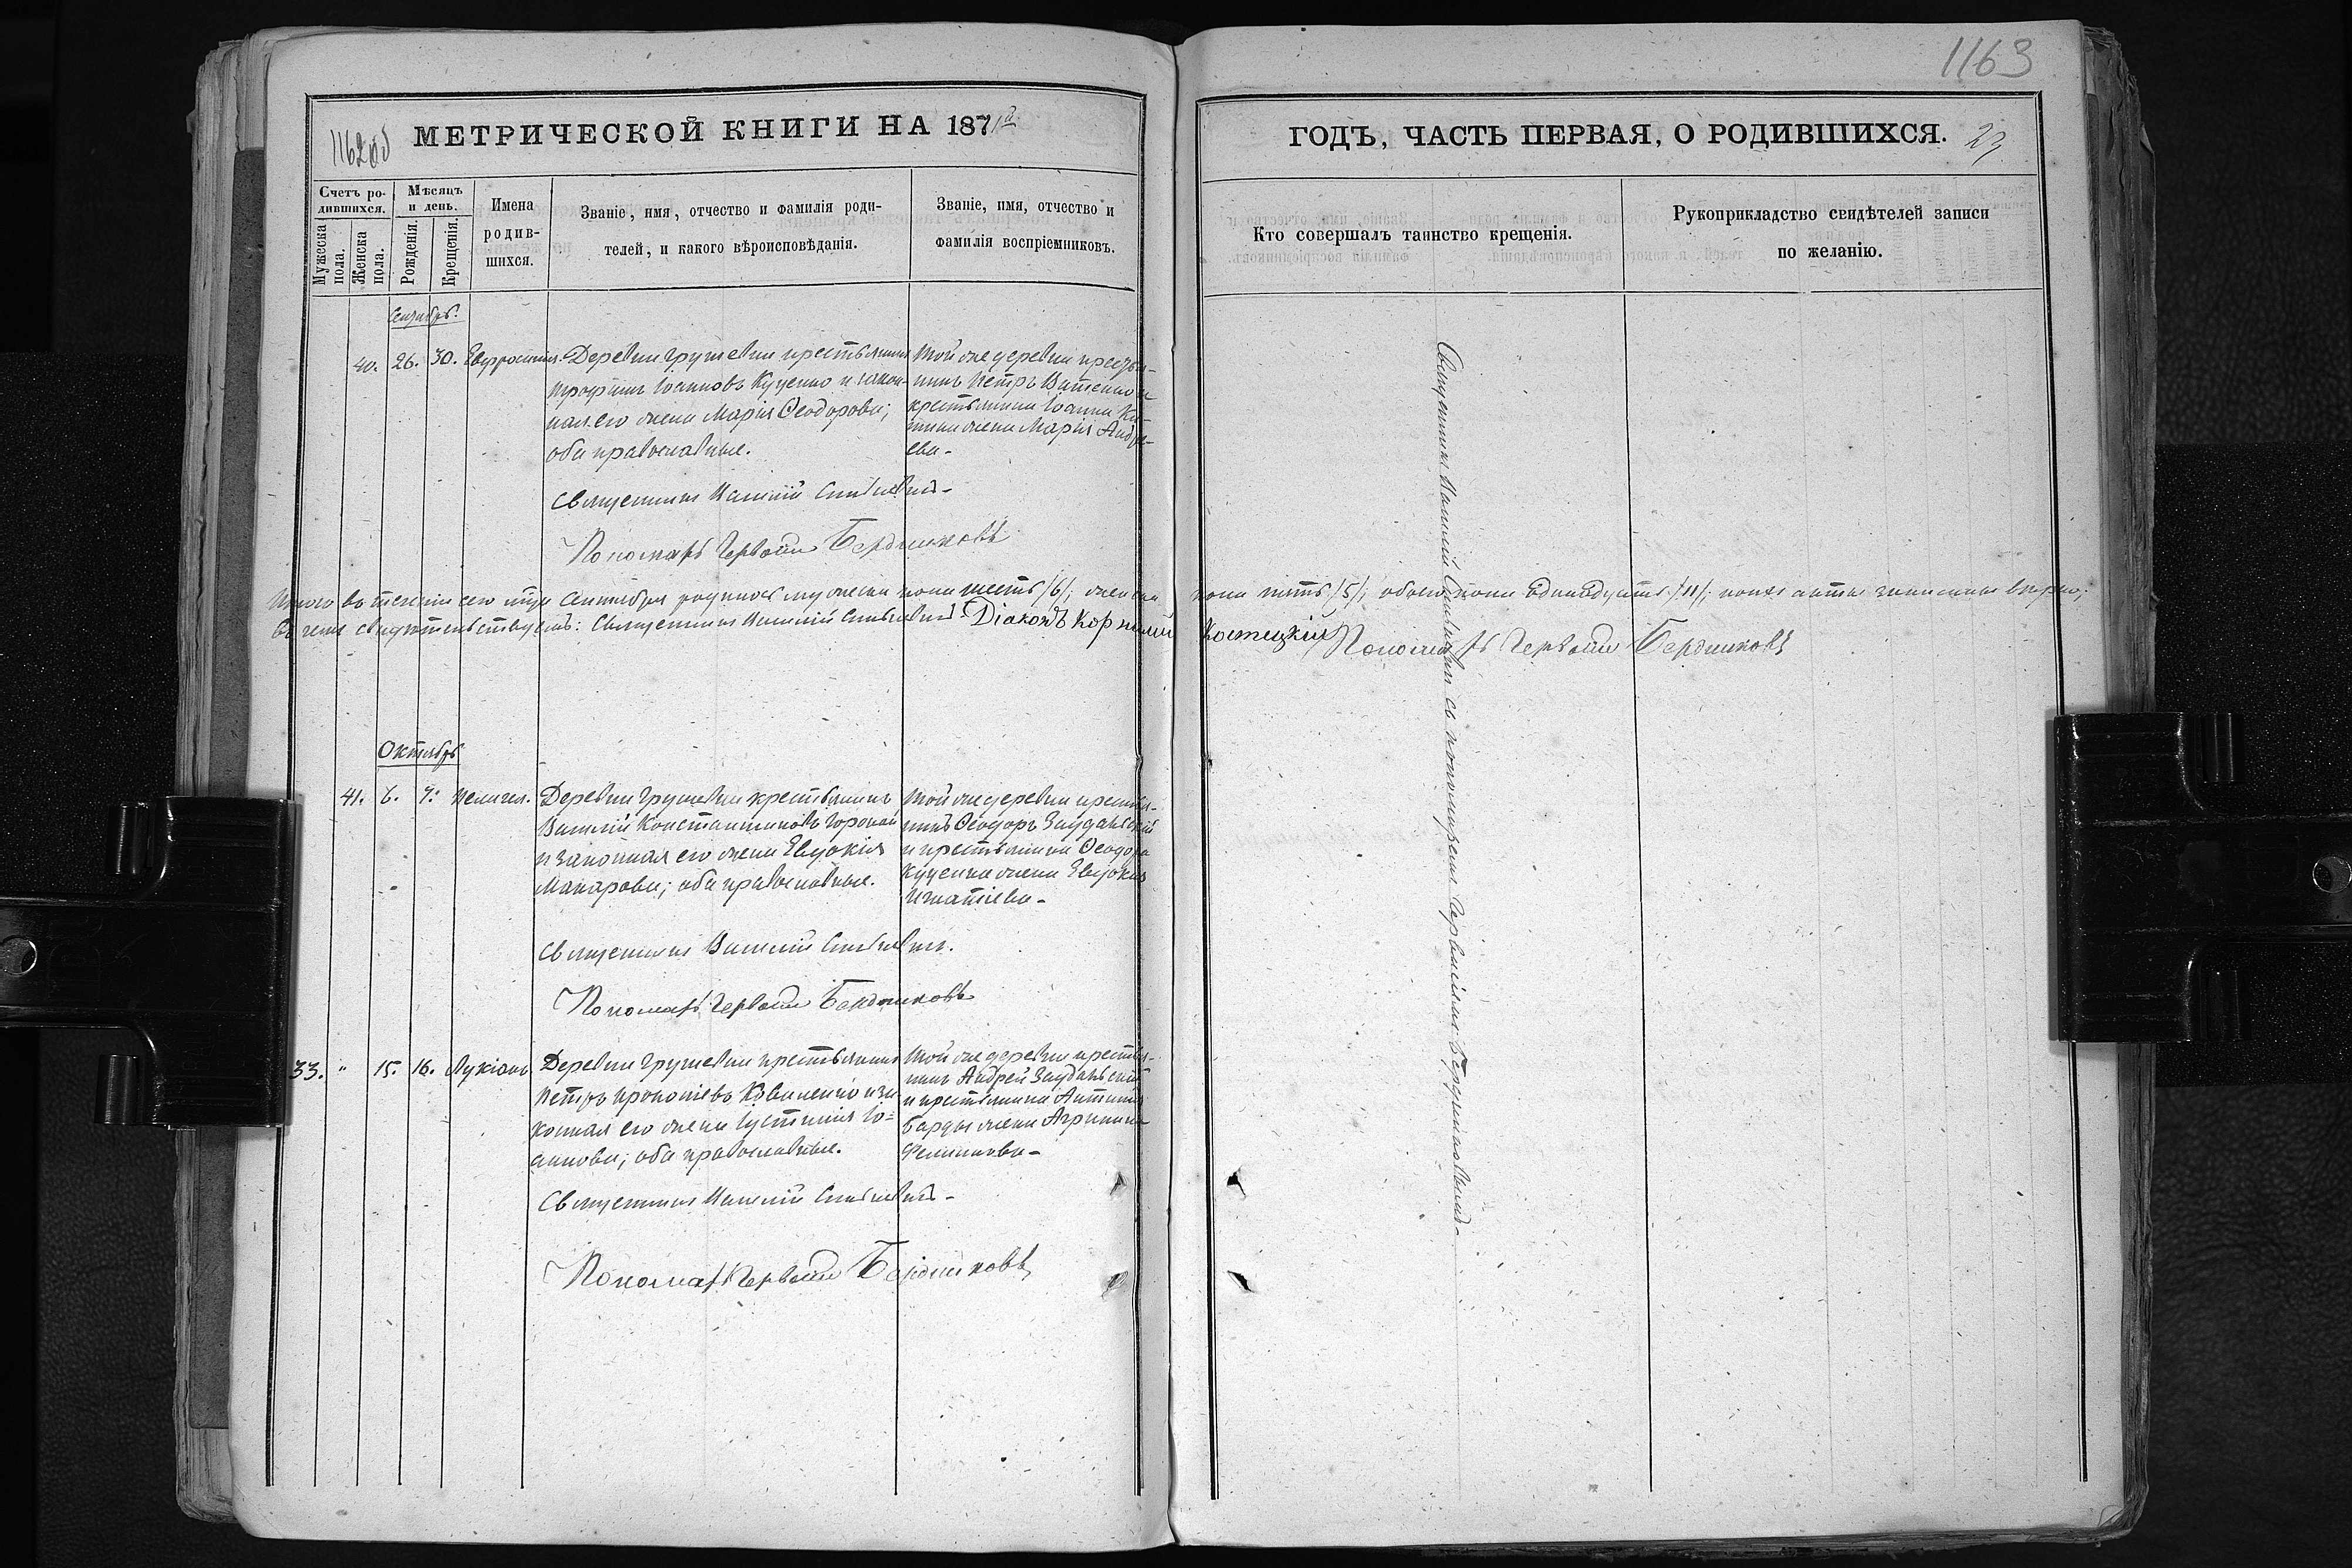 1163
1162об
МЕТРИЧЕСКОЙ КНИГИ НА 1871й
ГОДЪ, ЧАСТЬ ПЕРВАЯ, О РОДИВШИХСЯ. 23
Счетъ ро-
дившихся.
Мужеска
пола.
Женска
пола.
Мѣсяцъ
и день.
Рожденія.
Крещенія.
Имена
родив-
шихся.
Званіе, имя, отчество и фамилія роди-
телей, и какого вѣроисповѣданія.
Званіе, имя, отчество и
фамилія воспріемниковъ.
Кто совершалъ таинство крещенія.
Рукоприкладство свидѣтелей записи
по желанію.
Сентябрь.
40. 26. 30. Евфросинія.
Деревни Грушевки крестьянинъ
Трофимъ Іоанновъ Куценко и закон-
ная его жена Марія Ѳеодорова;
оба православные.
Той же деревни крестья-
нинъ Петръ
крестьянина Іоанна
жена Марія Андре-
ева-
Священникъ Василій
Пономарь Гервасій Бердниковъ
Итого въ теченіи сего м-ца Сентября родилось мужеска пола шесть /6/; женска пола пять /5/; обоего пола одинадцать /11/; коихъ акты записаны вѣрно;
въ чемъ свидѣтельствуемъ: Священникъ Василій Діаконъ Корнилій Костецкій Пономарь Гервасій Бердниковъ
Октябрь
41. 6. 7. Пелагея.
Деревни Грушевки крестьянинъ
Василій Константиновъ
и законная его жена Евдокія
Макарова; оба православные.
Той же деревни крестья-
нинъ Ѳеодоръ Зауданьскій
и крестьянина Ѳеодора
Куценка жена Евдокія
Игнатіева-
Священникъ Василій
Пономарь Гервасій Бердниковъ
33. " 15. 16. Лукіанъ
Деревни Грушевки крестьянинъ
Петръ Прокопіевъ Коваленко и за-
конная его жена Іустинія Іо=
аннова; оба православные.
Той же деревни крестья-
нинъ Андрей Зауданьскій
и крестьянина
жена Агрипина
Филипова-
Священникъ Василій
Пономарь Гервасій Бердниковъ
Священникъ Василій съ пономаремъ Гервасіемъ Бердниковымъ-